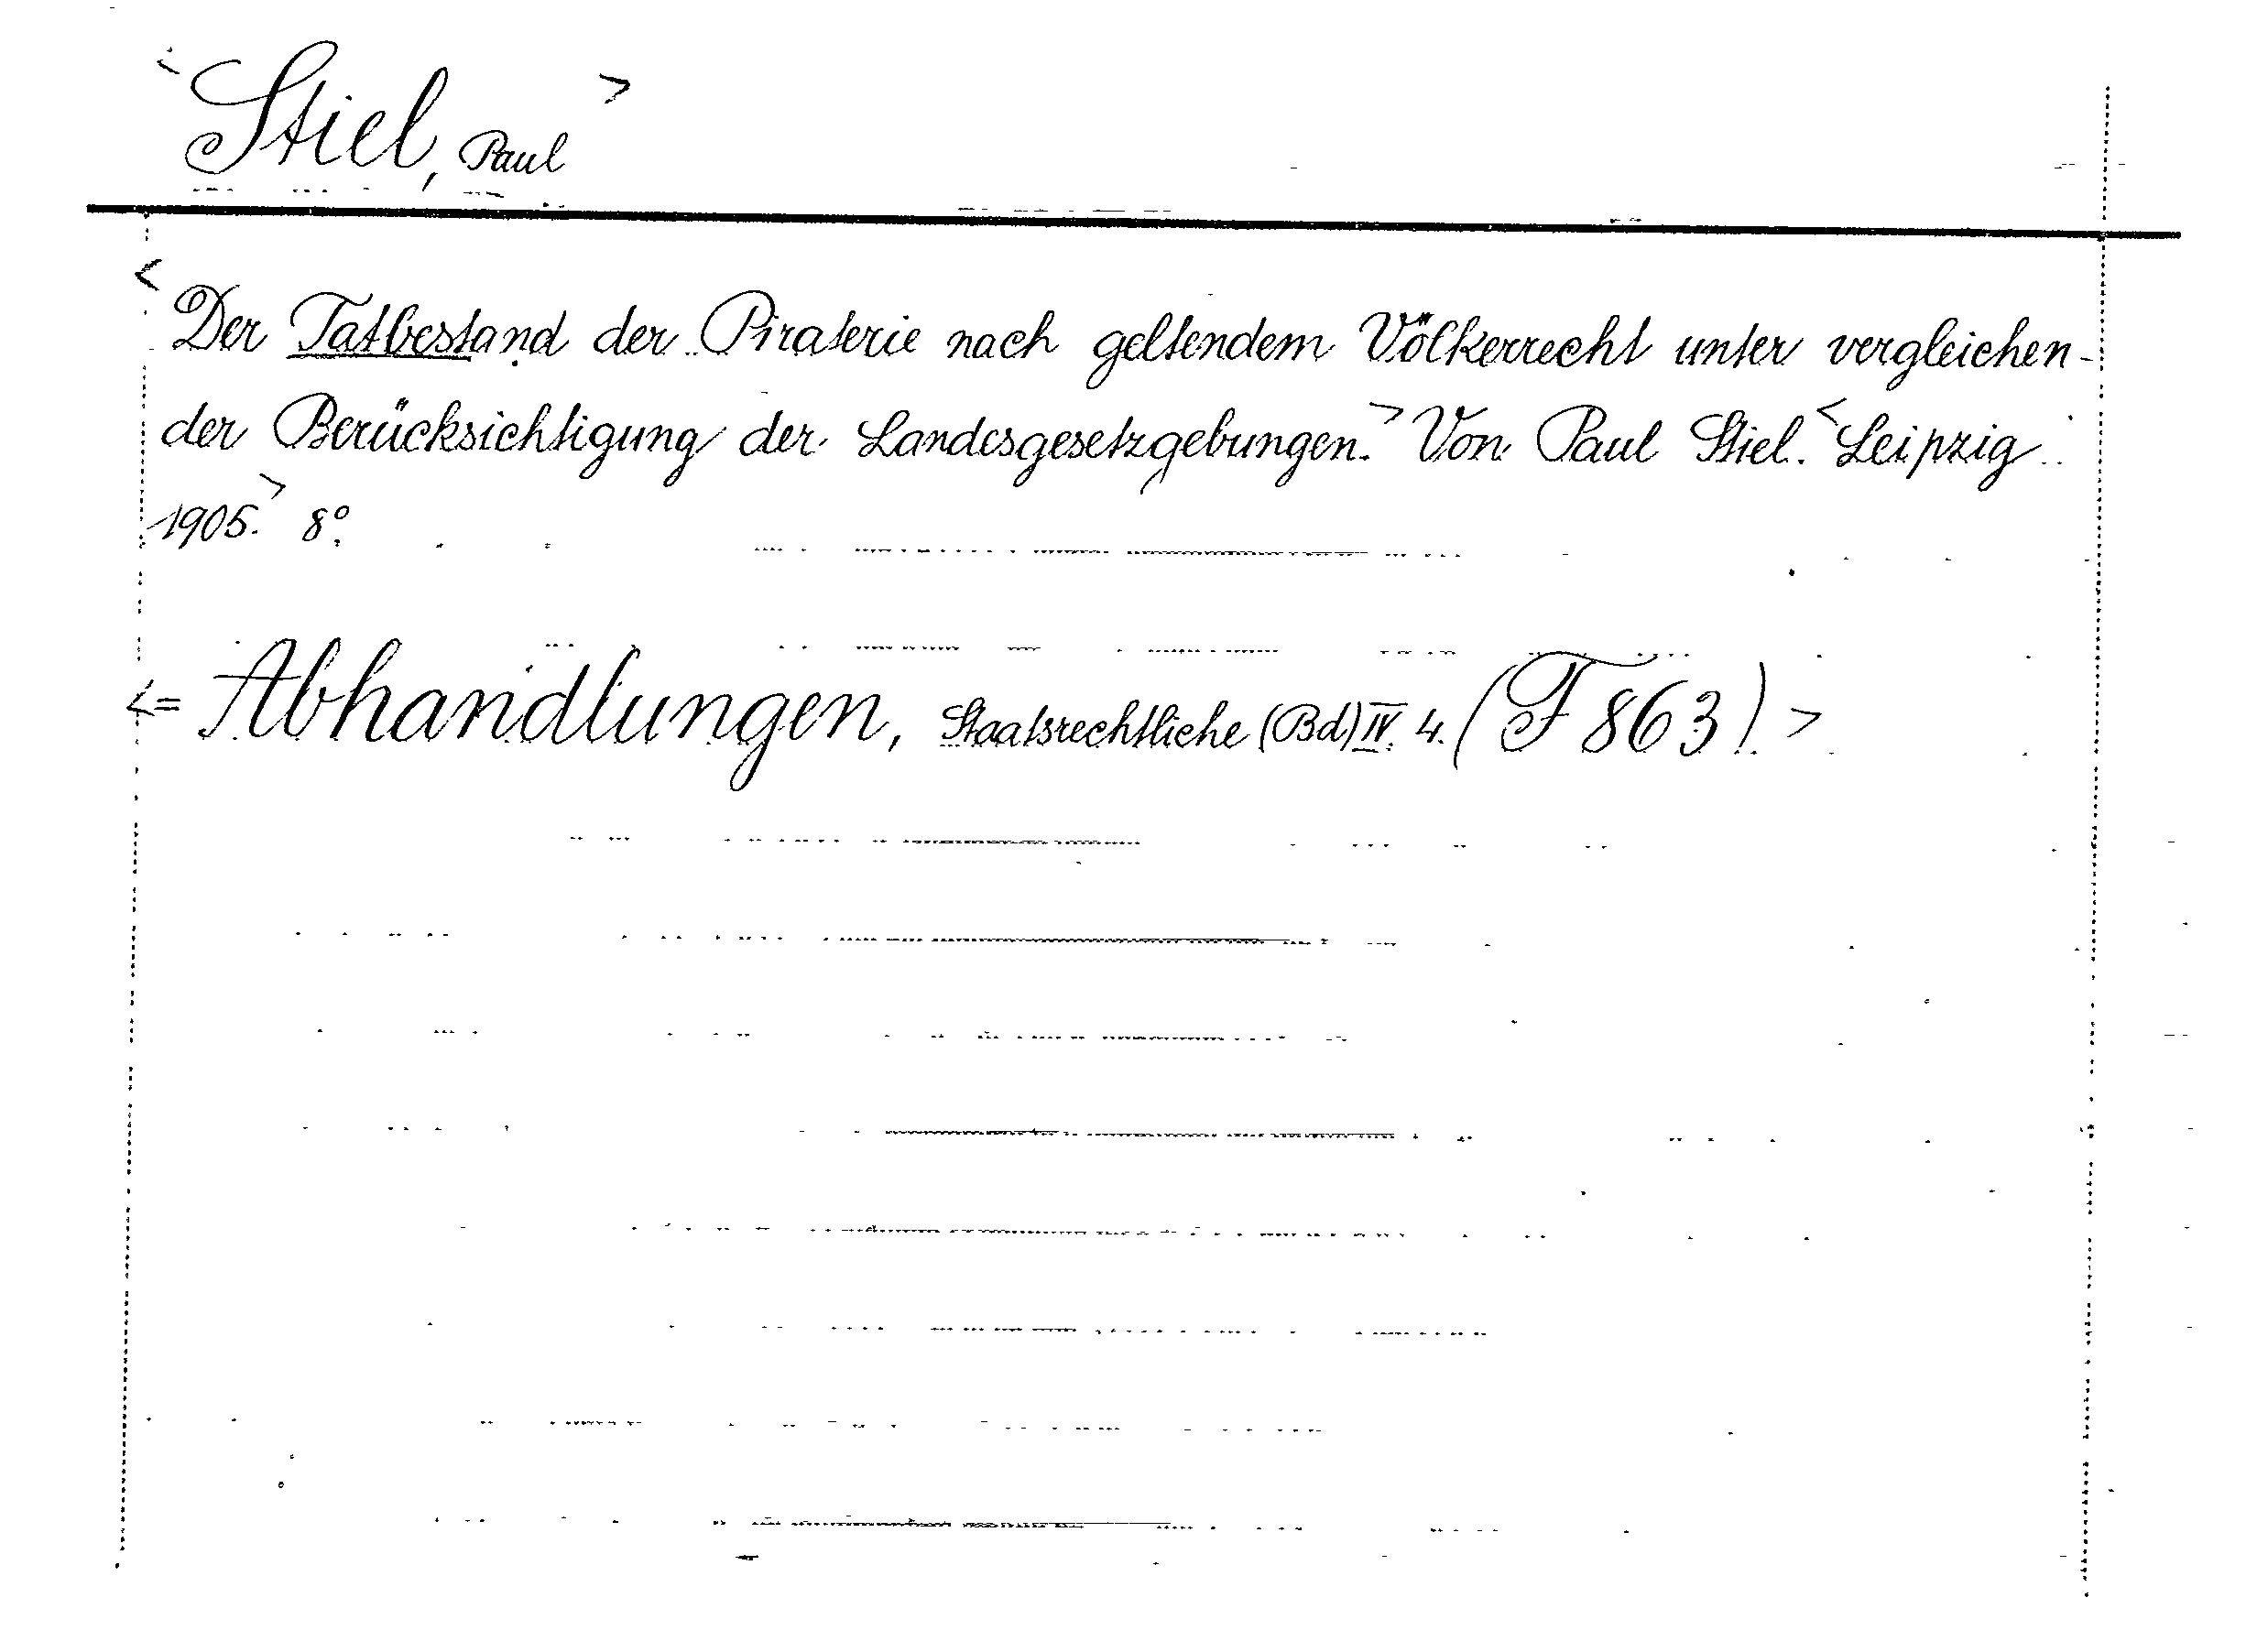 <Stiel, Paul>
<Der Tatbestand der Piraterie nach geltendem Völkerrecht unter vergleichen-
der Berücksichtigung der Landesgesetzgebungen.> Von Paul Stiel. <Leipzig
1905.> 8°.
<= Abhandlungen, Staatsrechtliche (Bd) IV. 4. (F 863) >